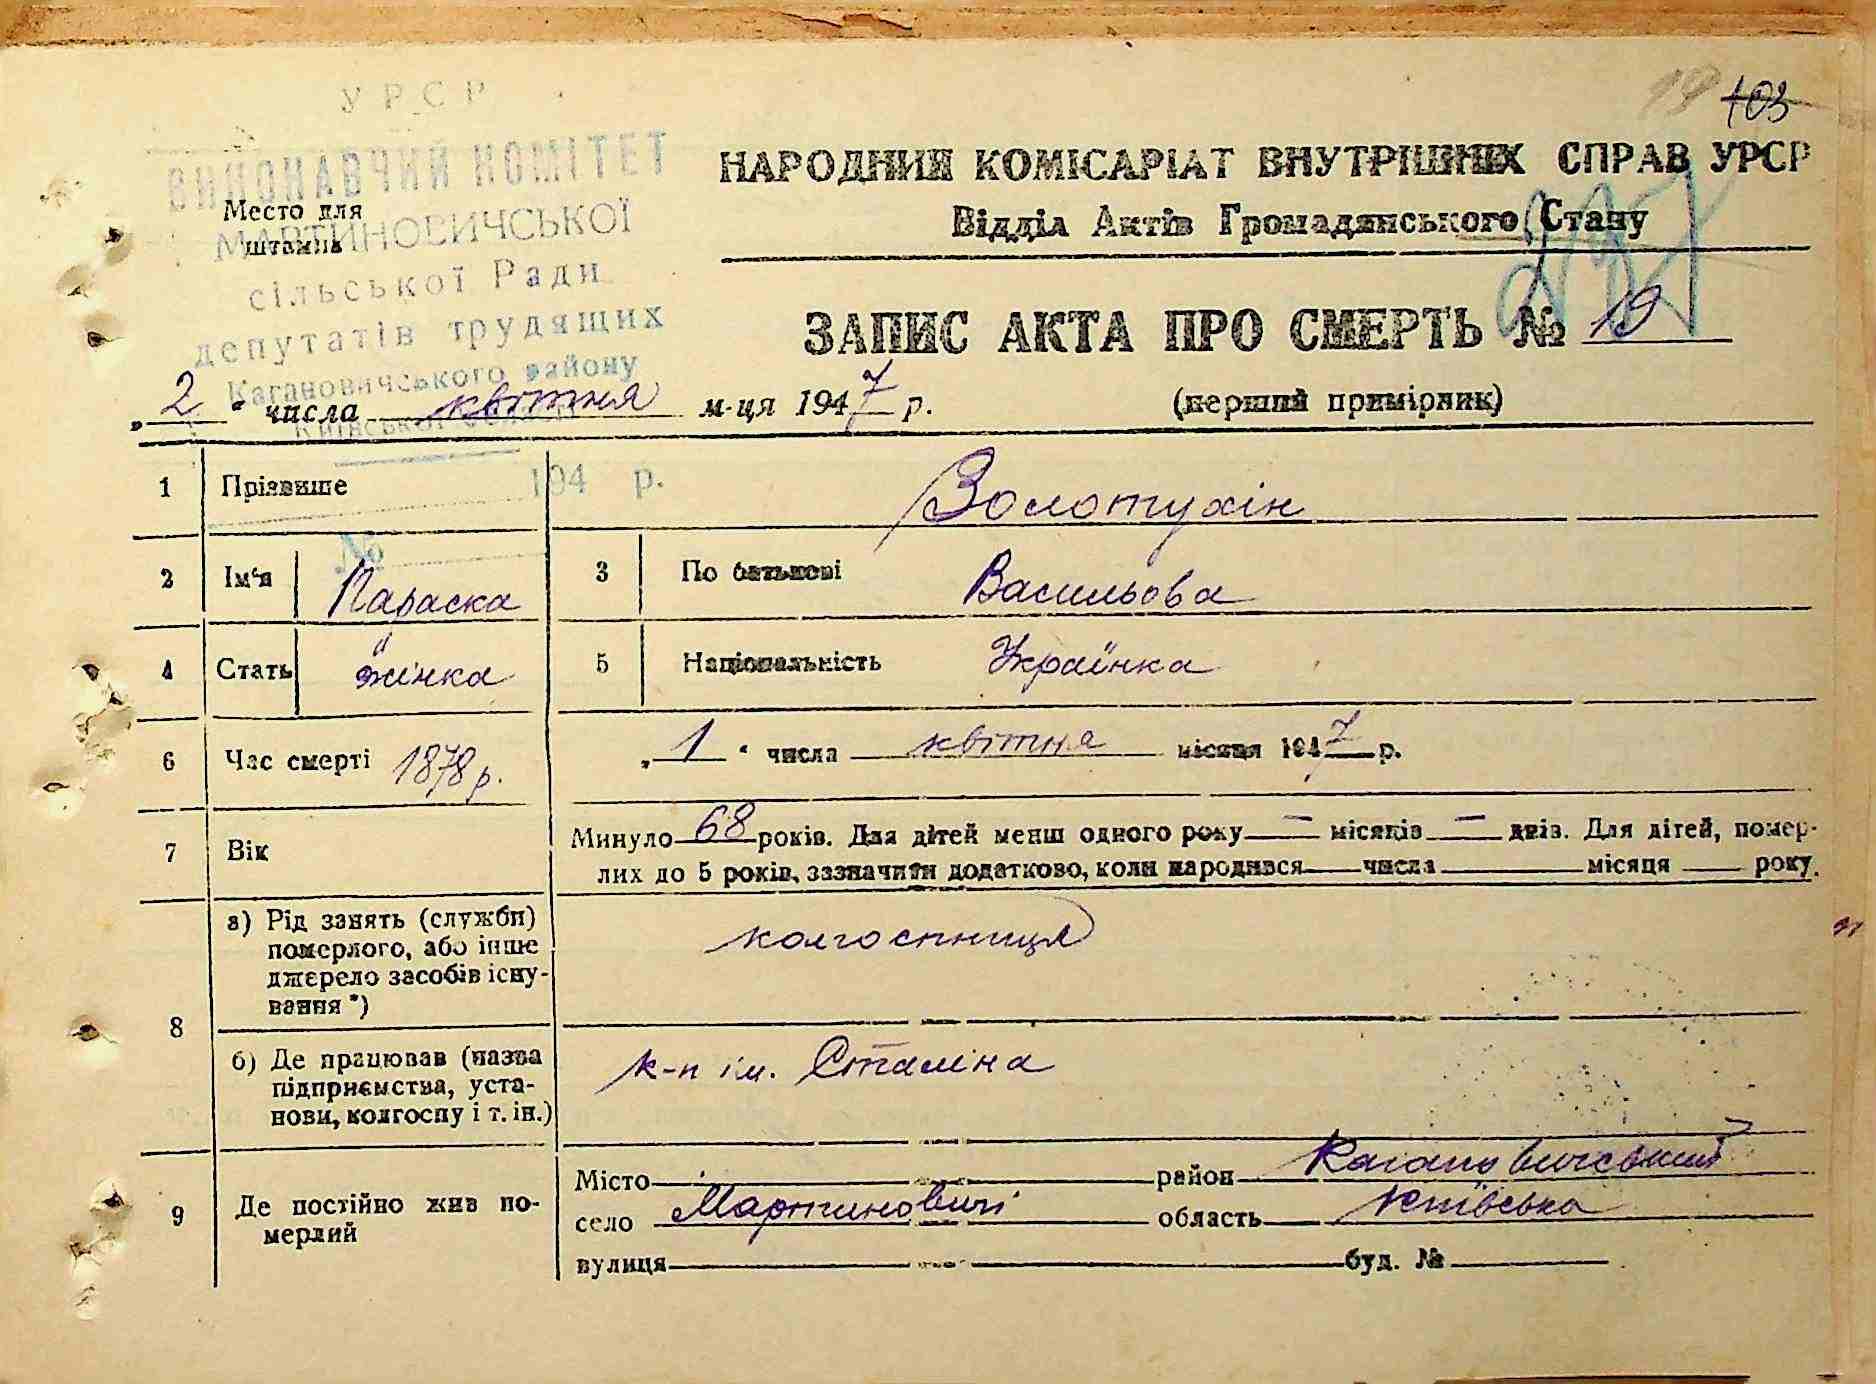 19 103
УРСР
ВИКОНАВЧИЙ КОМІТЕТ
МАРТИНОВИЧСЬКОЇ
сільської Ради
депутатів трудящих
Кагановичського району
Київської області
194 р.
№
Место для
штампа
НАРОДНИЙ КОМІСАРІАТ ВНУТРІШНІХ СПРАВ УРСР
Відділ Актів Громадянського Стану
ЗАПИС АКТА ПРО СМЕРТЬ № 19
„2“ числа квітня м-ця 1947 р. (перший примірник)
1 Прізвище Золотухін
2 Ім'я Параска 3 По батькові Васильова
4 Стать жінка 5 Національність Українка
6 Час смерті 1878 р. „1“ числа квітня місяця 1947 р.
7 Вік Минуло 68 років. Для дітей менш одного року — місяців — днів. Для дітей, помер-
лих до 5 років, зазначити додатково, коли народився числа місяця року.
8 а) Рід занять (служби)
померлого, або інше
джерело засобів існу-
вання *)
колгоспниця
б) Де працював (назва
підприємства, уста-
нови, колгоспу і т. ін.)
к-п ім. Сталіна
9 Де постійно жив по-
мерлий
Місто район Кагановичський
село Мартиновичі область Київська
вулиця буд. №